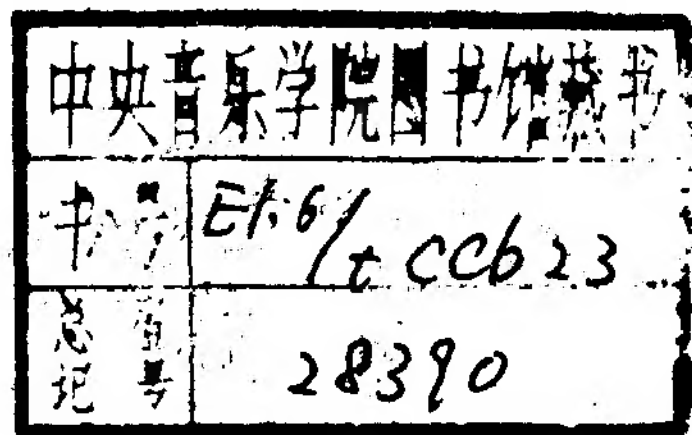 中央音乐学院图书馆藏书
书号 E1.6/t CCb23
总登记号 28390